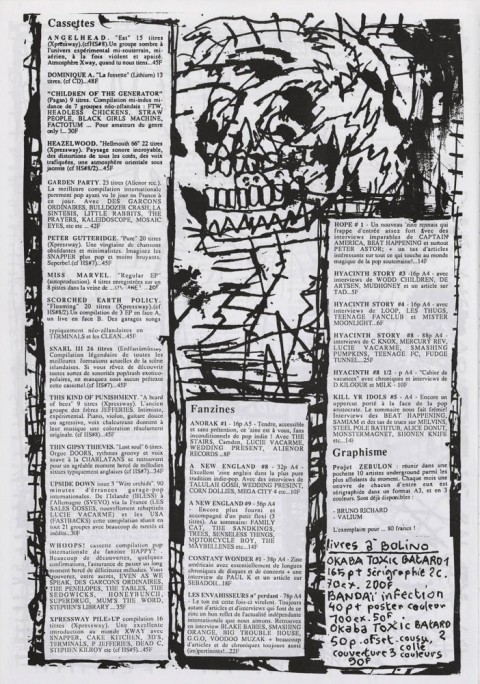 Cassettes
ANGELHEAD. "Eat" 15 titres
(Xpressway).(cfHS#8).Un groupe sombre à
l'univers expérimental mi-souterrain, mi-
aérien, à la fois violent et apaisé.
Atmosphère Xway, quand tu nous tiens...45F
DOMINIQUE A. "La fossette" (Lithium) 13
titres. (cf CD)...48F
"CHILDREN OF THE GENERATOR"
(Pagan) 9 titres. Compilation mi-indus mi-
dance de 7 groupes néo-zélandais : FTW,
HEADLESS CHICKENS, STRAW
PEOPLE, BLACK GIRLS MACHINE,
FACTOTUM ... Pour amateurs du genre
only !... 30F
HEAZELWOOD. "Hellmouth 66" 22 titres
(Xpressway). Paysage sonore incroyable,
des distorsions de tous les cotés, des voix
trafiquées, une atmosphère orientale sous
jacente (cf HS#8/2)...45F
GARDEN PARTY. 23 titres (Alienor rec.).
La meilleure compilation internationale
purement pop ayant vu le jour en France à
ce jour. Avec DES GARCONS
ORDINAIRES, BULLDOZER CRASH, LA
SINTESIS, LITTLE RABBITS, THE
PRAYERS, KALEIDOSCOPE, MOSAIC
EYES, etc etc ... 42F
PETER GUTTERIDGE. "Pure" 20 titres
(Xpressway). Une vingtaine de chansons
obsédantes et minimalistes. Imaginez un
SNAPPER plus pop et moins bruyants.
Superbe! (cf HS#7)...45F
MISS MARVEL. "Regular EP"
(autoproduction). 4 titres enregistrées sur un
8 pistes dans la veine de ... 20F
SCORCHED EARTH POLICY.
"Flouming" 20 titres (Xpressway).(cf
HS#8/2).Un compilation de 3 EF en face A,
un live en face B. Des garages songs
typiquement néo-zélandaises en
TERMINALS et les CLEAN...45F
SNARL III 26 titres
Compilation légendaire de toutes les
meilleures formations actuelles de la scène
islandaises. Si vous rêvez de découvrir
toutes sortes de sonorités pop/trash exotico-
polaires, ne manquez sous aucun prétexte
cette cassette! (cf HS#7)...45F
THIS KIND OF PUNISHMENT. "A beard
of bees" 9 titres (Xpressway). L'ancien
groupe des frères JEFFERIES. Intimiste,
expérimental. Piano, violon, guitare douce
ou agressive, voix chaleureuse donnent à
leur musique une coloration résolument
originale. (cf HS#8)...45F
THIN GIPSY THIEVES. "Last soul" 6 titres.
Orgue DOORS, rythmes groovy et voix
suave à la CHARLATANS se retrouvent
pour un agréable moment bercé de mélodies
rétros typiquement anglaises (cf HS#7)...36F
UPSIDE DOWN issue 5 "Wee orchids" 90
minutes d'errances garage-pop
internationales. De l'Islande (BLESS) à
l'Allemagne (SVEVO) via la France (LES
SALES GOSSES, nouvellement rebaptisés
LUCIE VACARME) et les USA
(FASTBACKS) cette compilation réunit en
tout 21 groupes avec beaucoup de neufs et
inédits...30F
WHOOPS! cassette compilation pop
internationale du fanzine HAPPY? -
Beaucoup de découvertes, quelques
confirmations, l'assurance de passer un long
moment bercé de délicieuses mélodies. Vous
trouverez, entre autres, EVEN AS WE
SPEAK, DES GARCONS ORDINAIRES,
ANTELOPES, THE TABLES, THE
SEDGWICKS, HONEYBUNCH,
SUPERDRUG, MUM'S THE WORD,
STEPHEN'S LIBRARY ... 35F
XPRESSWAY PILE=UP compilation 16
titres (Xpressway). Une excellente
introduction au monde XWAY avec
SNAPPER, CAKE KITCHEN, 3D'S,
TERMINALS, P JEFFERIES, DEAD C,
STEPHEN KILROY etc (cf HS#5)...45F
Fanzines
ANORAK #1 - 16p A5 - Tendre, accessible
et sans prétention, ce 'zine est à vous, fans
inconditionnels de pop indie ! Avec THE
STAIRS, Camden, LUCIE VACARME,
WEDDING PRESENT, ALIENOR
RECORDS ...8F
A NEW ENGLAND #8 - 32p A4 -
Excellent 'zine anglais dans la plus pure
tradition indie-pop. Avec des interviews de
TALULAH GOSH, WEDDING PRESENT,
CORN DOLLIES, MEGA CITY 4 etc...10F
A NEW ENGLAND #9 - 36p A4
- Encore plus fourni et
accompagné d'un petit flexi (3
titres). Au sommaire: FAMILY
CAT, THE SANDKINGS,
TREES, SENSELESS THINGS,
MOTORCYCLE BOY, THE
MAYBELLINES etc...14F
CONSTANT WONDER #1 - 38p A4 - Zine
américain avec essentiellement de longues
chroniques de disques et de concerts + une
interview de PAUL K et un article sur
SEBADOH...18F
LES ENVAHISSEURS n° perdant - 78p A4
- Le ton est cette fois-ci virulent. Toujours
autant d'articles et d'interviews qui font de ce
titre un bon reflet de l'actualité indépendante
internationale que nous aimons. Retrouvez
en interview BLAKE BABIES, SMASHING
ORANGE, BIG TROUBLE HOUSE,
G.GO, VOODOO MUZAK + beaucoup
d'articles et de chroniques toujours aussi
(im)pertinentes!...22F
HOPE # 1 - Un nouveau 'zine rennais qui
frappe d'entrée assez fort. Avec des
interviews imparables de CAPTAIN
AMERICA, BEAT HAPPENING et surtout
PETER ASTOR; + un tas d'articles
intéressants sur tout ce qui touche au monde
magique de la pop souterraine!...14F
HYACINTH STORY #3 -16p A4 - avec
interviews de WODD CHILDREN, DE
ARTSEN, MUDHONEY et un article sur
TAD...5F
HYACINTH STORY #4 -16p A4 - avec
interviews de LOOP, LES THUGS,
TEENAGE FANCLUB et MISTER
MOONLIGHT...6F
HYACINTH STORY #8 - 88p A4 -
interviews de C KNOX, MERCURY REV,
LUCIE VACARME, SMASHING
PUMPKINS, TEENAGE FC, FUDGE
TUNNEL...25F
HYACINTH #8 1/2 - p A4 - "Cahier de
vacances" avec chroniques et interviews de
D.KILGOUR et MILK - 10F
KILL YR IDOLS #5 - A4 - Encore un
opportun porté à la face de la pop
aristocrate. Le sommaire nous fait frémir!
Interviews des BEAT HAPPENING,
SAMIAM et des tas de trucs sur MELVINS,
STEEL POLE BATHTUB, ALICE DONUT,
MONSTERMAGNET, SHONEN KNIFE
etc...14F
Graphisme
Projet ZEBULON : réunir dans une
pochette 10 artistes underground parmi les
plus affolants du moment. Chaque mois une
oeuvre de chacun d'entre eux est
sérigraphiée dans un format A3, et en 3
couleurs. Sont déjà disponibles :
- BRUNO RICHARD
- VALIUM
L'exemplaire pour ... 80 francs !
livres à Bolino
OKABA TOXIC BATARD 1
165pt Sérigraphie 2c.
70ex. 200F
BANDAÏ infection
40pt poster couleur
700ex. 50F.
Okaba Toxic BATARD 2
50p. offset. cousu, collé
couverture 3 couleurs
90F